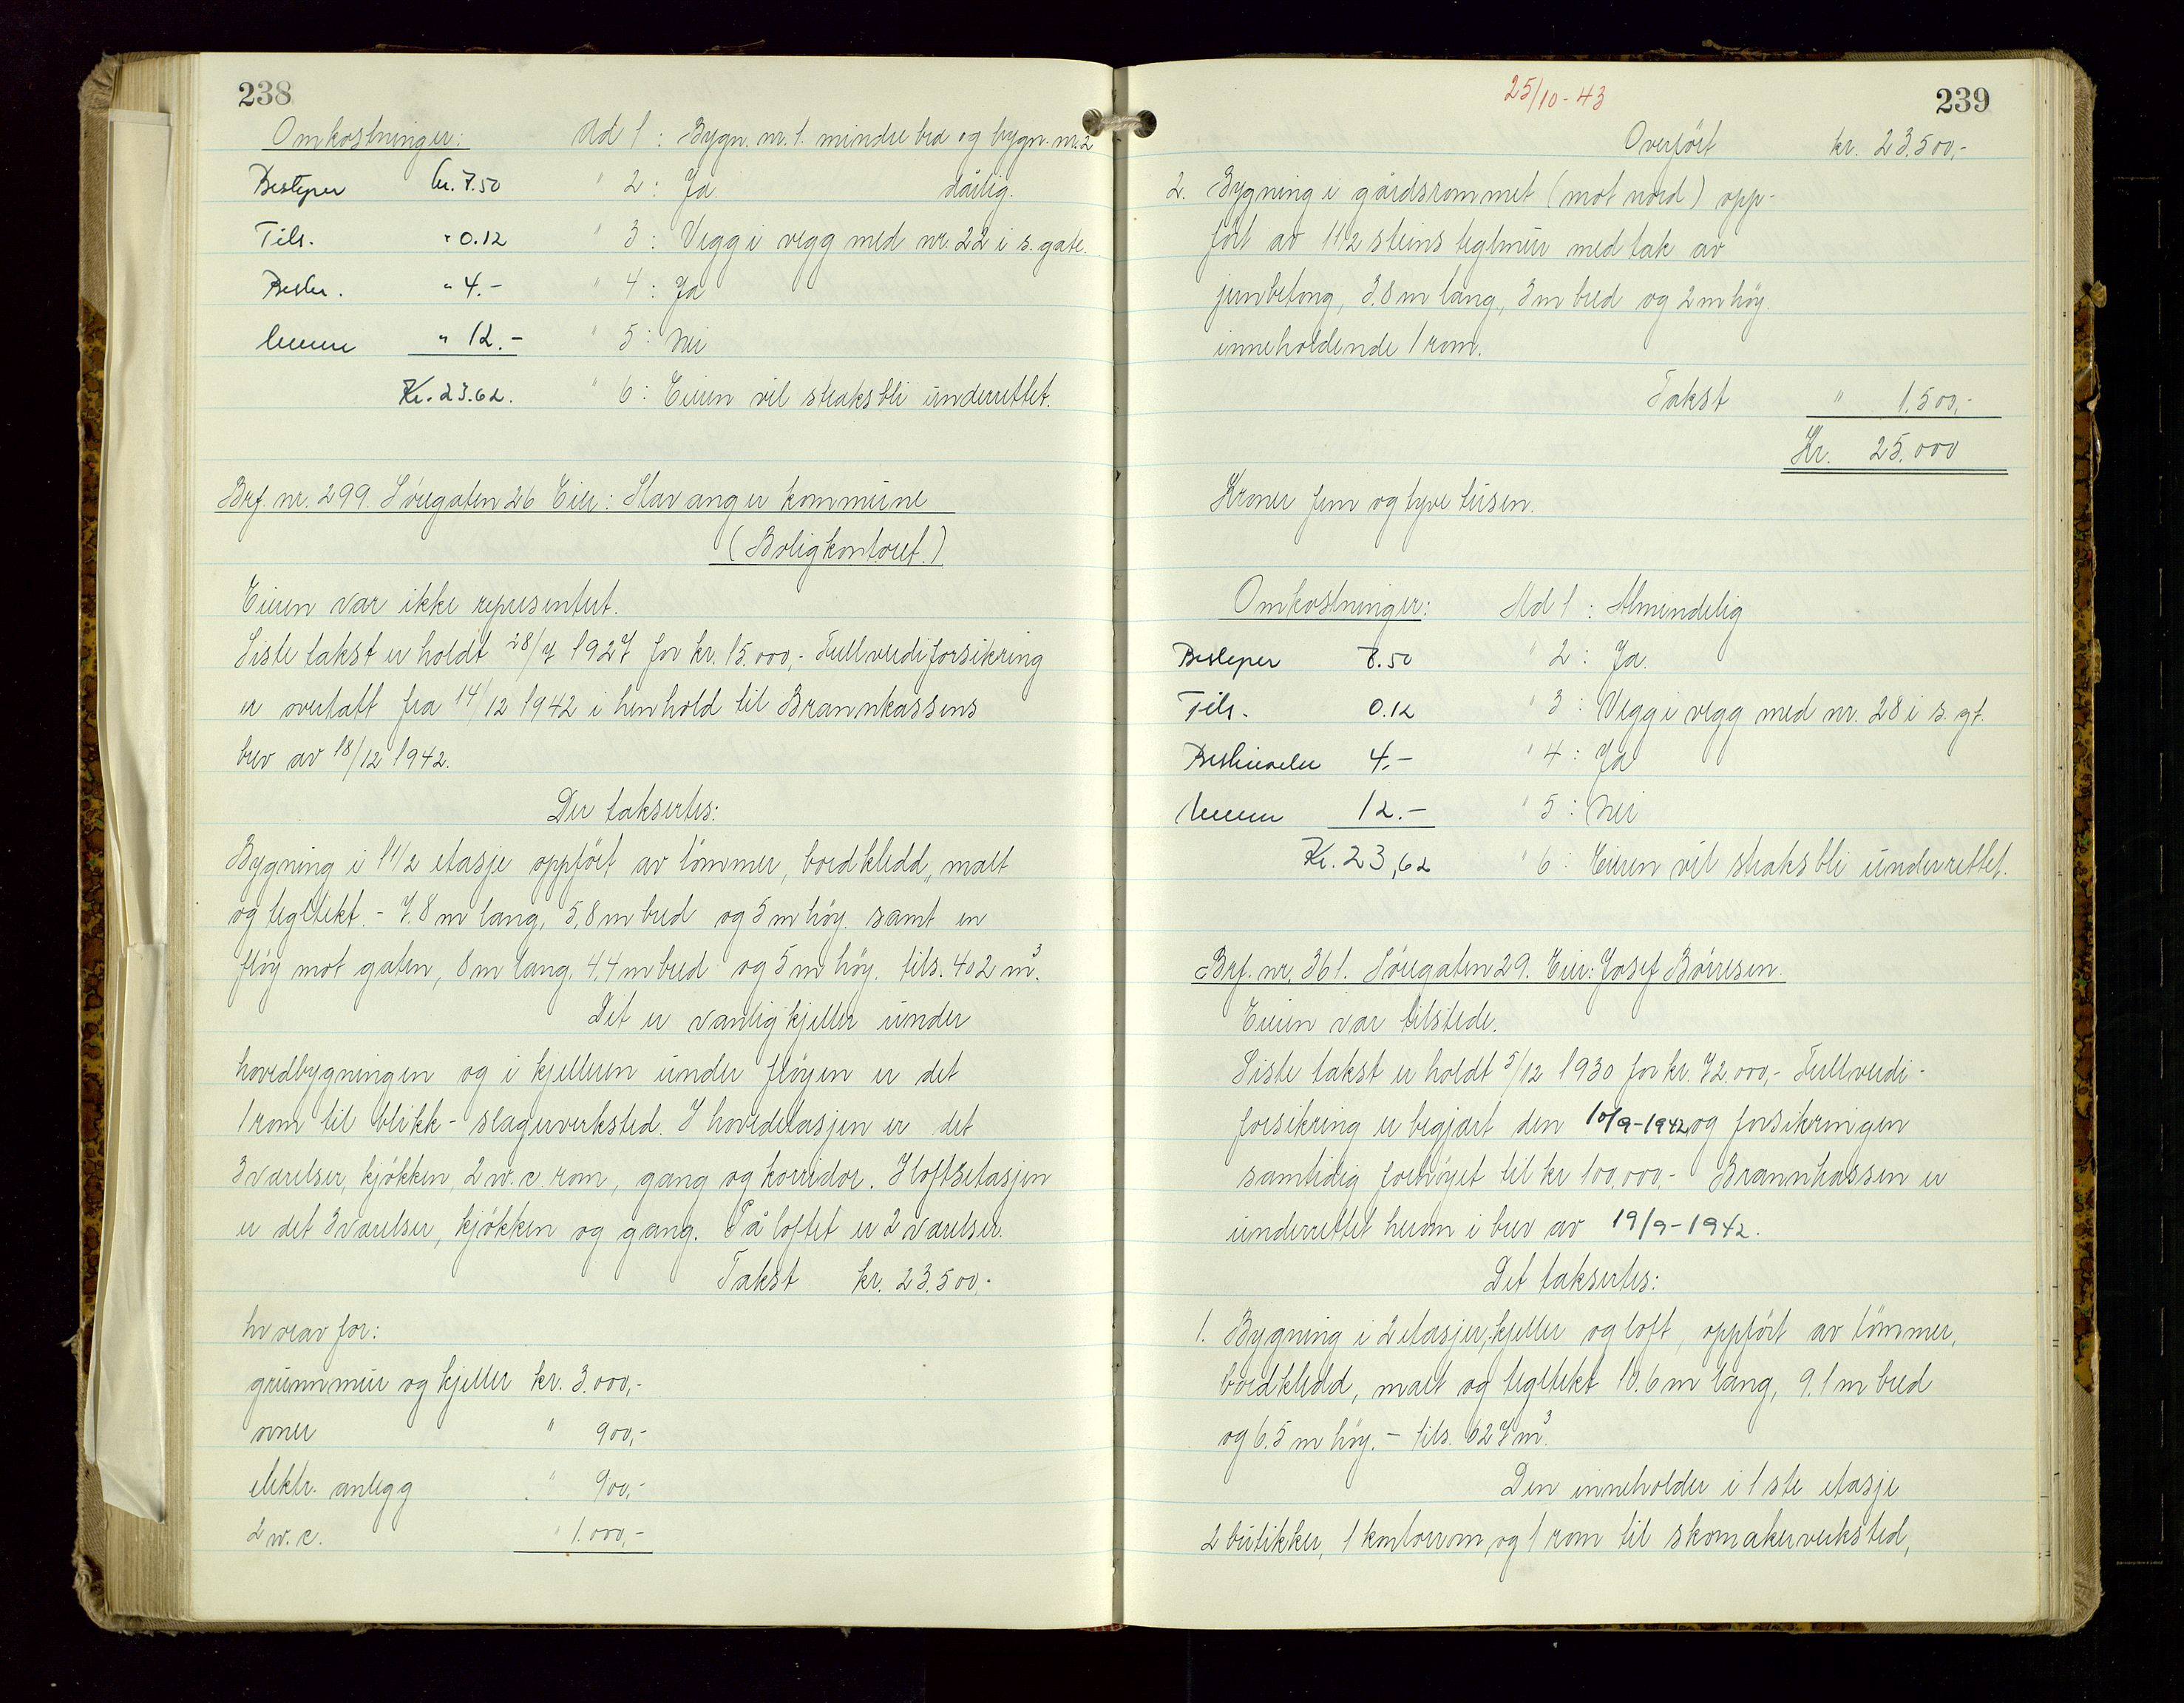 238
Omkostninger: Ad 1 : Bygn. nr. 1. mindre bra og bygn. nr. 2
Bestyrer kr. 7.50 " 2 : Ja. dårlig.
Tils. " 0.12 " 3 : Vegg i vegg med nr. 22 i s. gate.
Beskr. " 4.- " 4 : Ja
" 12.- " 5 : Nei
Kr. 23.62. " 6 : Eieren vil straks bli underrettet.
Brf. nr. 299. Søregaten 26 Eier: Stavanger kommune
(Boligkontoret.)
Eieren var ikke representert.
Siste takst er holdt 28/7 1927 for kr. 15.000,- Fullverdiforsikring
er overtatt fra 14/12 1942 i henhold til Brannkassens
brev av 18/12 1942.
Der takseres:
Bygning i 1 1/2 etasje oppført av tömmer, bordkledd, malt
og tegltekt. - 7.8 m lang, 5,8 m bred og 5 m høy. samt en
fløy mot gaten, 8 m lang, 4,4 m bred og 5 m høy. tils. 402 m³.
Det er vanlig kjeller under
hovedbygningen og i kjelleren under fløyen er det
1 rom til blikk-slagerverksted. I hovedetasjen er det
3 værelser, kjøkken, 2 w.c. rom, gang og korridor. I loftsetasjen
er det 3 værelser, kjøkken og gang. På loftet er 2 værelser.
Takst kr. 23.500,-
hvorav for:
grunnmur og kjeller kr. 3.000,-
ovner " 900,-
elektr. anlegg " 900,-
2 w.c. " 1.000,-
25/10-43
239
Overført kr. 23.500,-
2. Bygning i gårdsrommet (mot nord) opp-
ført av 1 1/2 steins teglmur med tak av
jernbetong, 3.8 m lang, 3 m bred og 2 m høy.
inneholdende 1 rom.
Takst " 1.500,-
Kr. 25.000
Kroner fem og tyve tusen.
Omkostninger: Ad 1 : Almindelig
Bestyrer 7.50 " 2 : Ja.
Tils. 0.12 " 3 : Vegg i vegg med nr. 28 i s. gt.
Beskrivelse 4.- " 4 : Ja
12.- " 5 : Nei
Kr. 23,62 " 6 : Eieren vil straks bli underrettet.
Brf. nr. 361. Søregaten 29. Eier: Josef Børresen.
Eieren var tilstede.
Siste takst er holdt 5/12 1930 for kr. 72.000,- Fullverdi-
forsikring er begjært den 10/9-1942 og forsikringen
samtidig forhøyet til kr 100.000,- Brannkassen er
underrettet herom i brev av 19/9-1942.
Det takseres:
1. Bygning i 2 etasjer, kjeller og loft, oppført av tömmer,
bordkledd, malt og tegltekt 10.6 m lang, 9.1 m bred
og 6.5 m høy. - tils. 627 m³.
Den inneholder i 1ste etasje
2 butikker, 1 kontorrom og 1 rom til skomakerverksted,